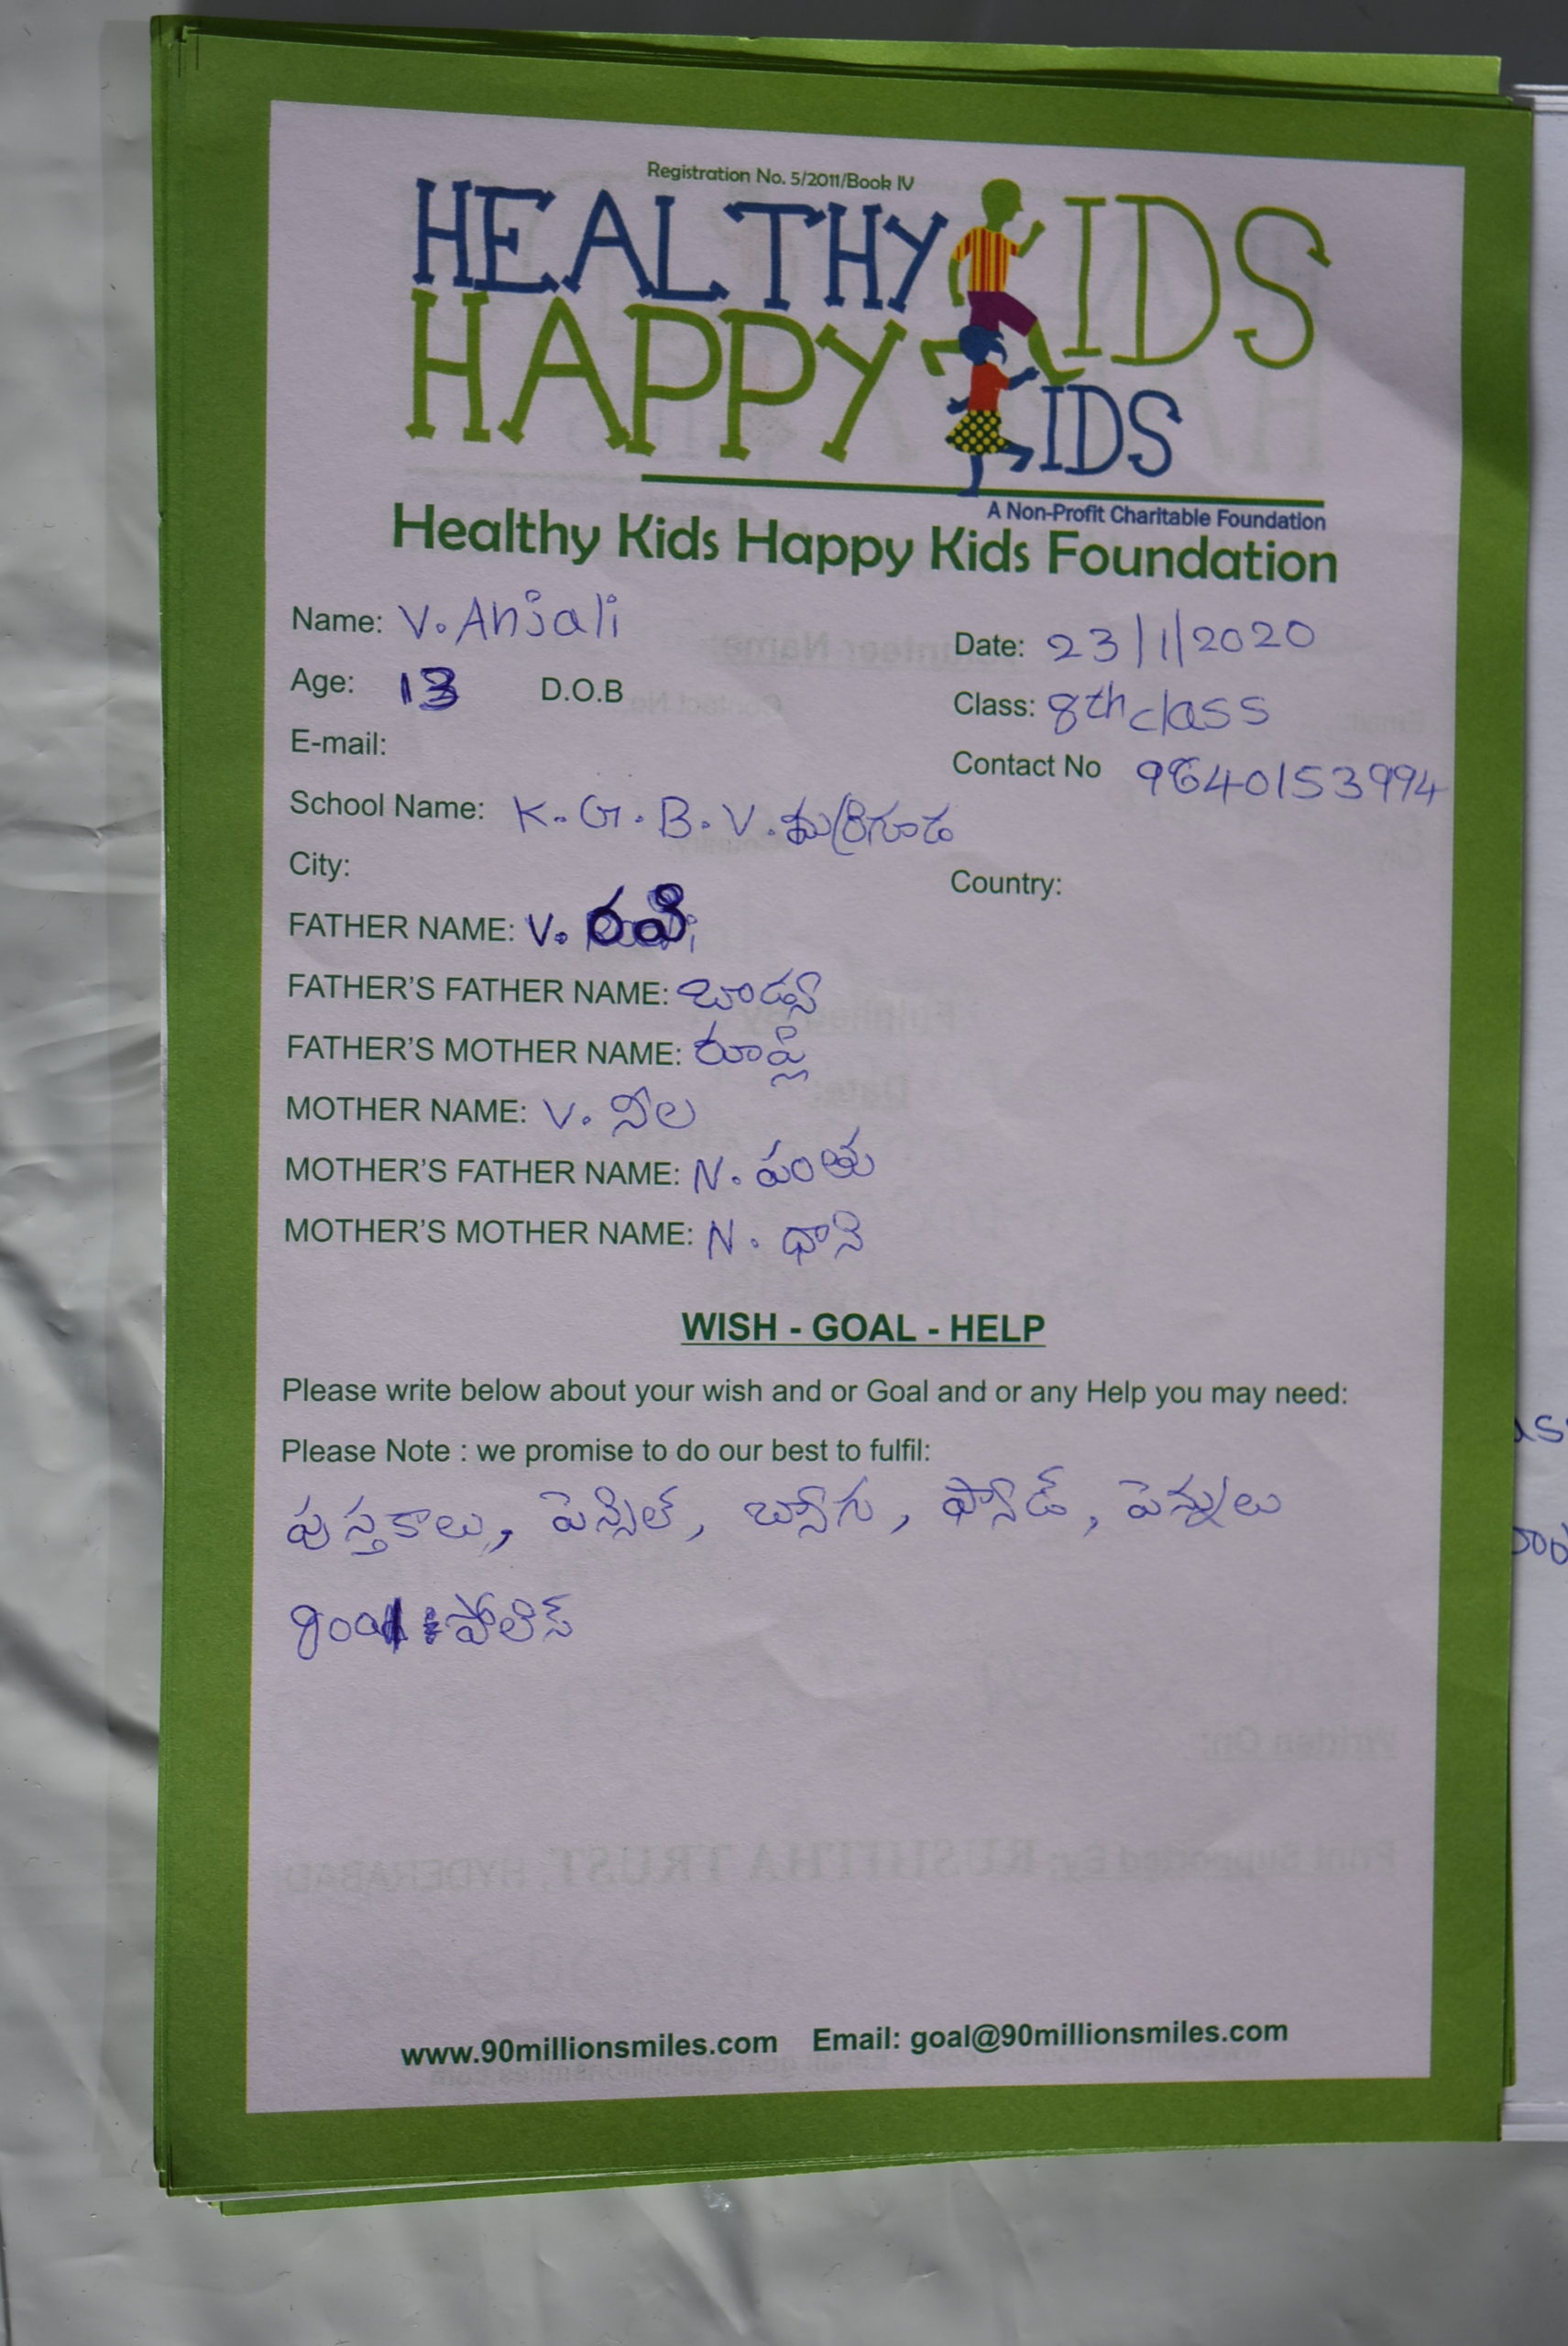 Registration No. 5/2011/Book IV
HEALTHY KIDS
HAPPY KIDS
A Non-Profit Charitable Foundation
Healthy Kids Happy Kids Foundation
Name: V. Anjali
Date: 23/1/2020
Age: 13 D.O.B
Class: 8th class
E-mail:
Contact No 9840153994
School Name: K.G.B.V.
City:
Country:
FATHER NAME: V. రవి
FATHER'S FATHER NAME:
FATHER'S MOTHER NAME: రూప్లి
MOTHER NAME: V. నీల
MOTHER'S FATHER NAME: N. పంతు
MOTHER'S MOTHER NAME: N. ధాని
WISH - GOAL - HELP
Please write below about your wish and or Goal and or any Help you may need:
Please Note : we promise to do our best to fulfil:
పుస్తకాలు, పెన్సిల్, బ్యాగు, ప్యాడ్, పెన్నులు
goal : పోలిస్
www.90millionsmiles.com Email: goal@90millionsmiles.com